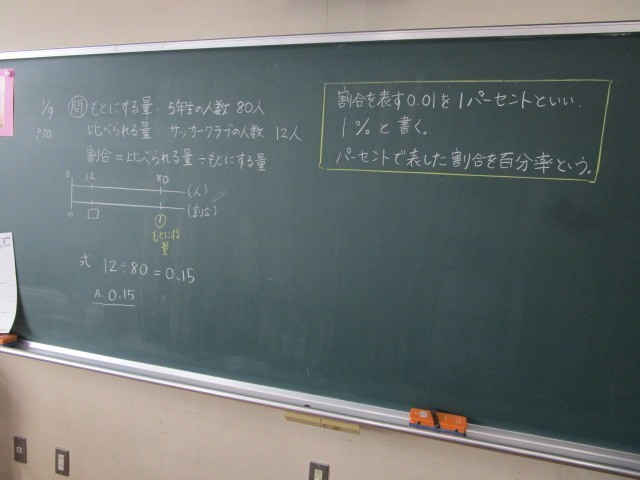 1/9 問 もとにする量‥5年生の人数 80人
P70 比べられる量‥サッカークラブの人数 12人
割合=比べられる量÷もとにする量
0 12 80 (人)
0 □ 1 (割合)
もとにする
量
式 12÷80=0.15
A. 0.15
割合を表す0.01を1パーセントといい、
1%と書く。
パーセントで表した割合を百分率という。